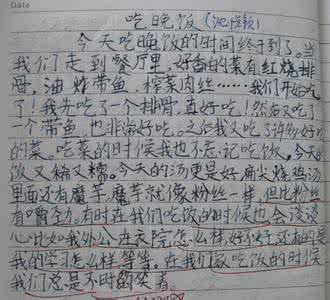 Date
吃晚饭(记段)
今天吃晚饭的时间终于到了。当
我们走到餐厅里,好香的菜有红烧排
骨,油炸带鱼,榨菜肉丝……我们开始吃
了!我先吃了一个排骨,真好吃!然后又吃了
一个带鱼,也非常好吃。之后我又吃了许多好吃
的菜。吃菜的时候我也不忘记吃饭。今天的
饭又稀又糯。今天的汤更是好,扁尖烧鸡汤
里面还有魔芋,魔芋就像粉丝一样,但比粉丝
有嚼劲。有时在我们吃饭的时候也会谈谈
心比如我外公在医院怎么样,好不好,还有的是
我的学习怎么样等等,在我们吃饭的时候
我们总是不时的笑着。